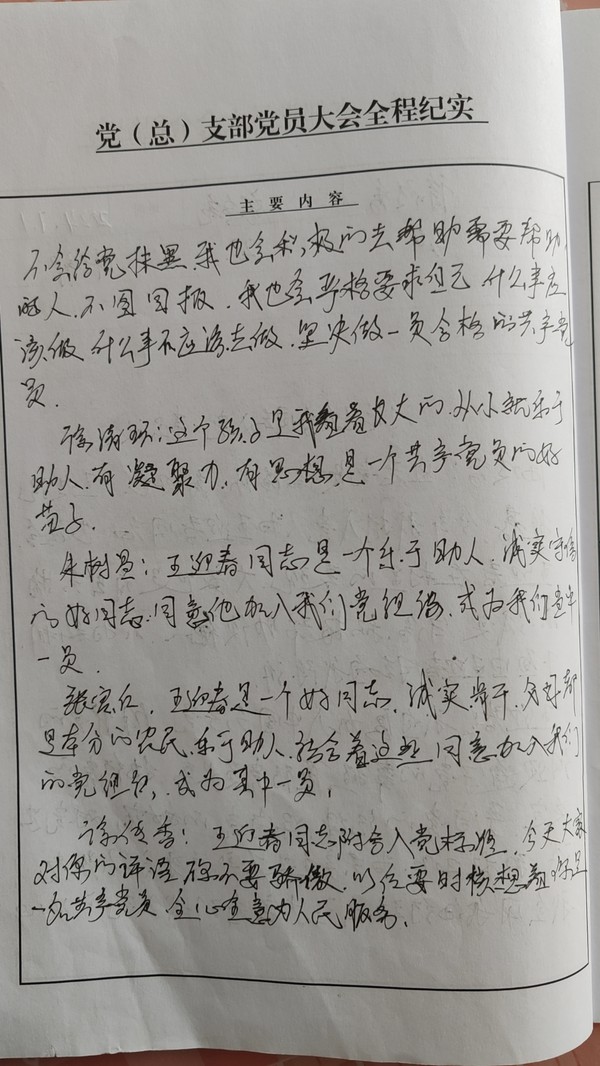 党（总）支部党员大会全程纪实
主要内容
不会给党抹黑.我也会积极的去帮助需要帮助
的人.不图回报.我也会严格要求自己 什么事应
该做 什么事不应该去做.坚决做一员合格的共产党
员.
这个孩子是我看着长大的.从小就乐于
助人.有凝聚力.有思想.是一个共产党员的好
苗子.
朱树：王迎春同志是一个乐于助人.诚实守信
的好同志.同意他加入我们党组织.成为我们其中
一员.
张宝仁.王迎春是一个好同志.诚实肯干.父母都
是本分的农民.乐于助人.结合着这些 同意加入我们
的党组织,成为其中一员,
徐传香：王迎春同志附合入党标准.今天大家
对你的评语 你不要骄傲.以后要时刻想着你是
一名共产党员.全心全意为人民服务.